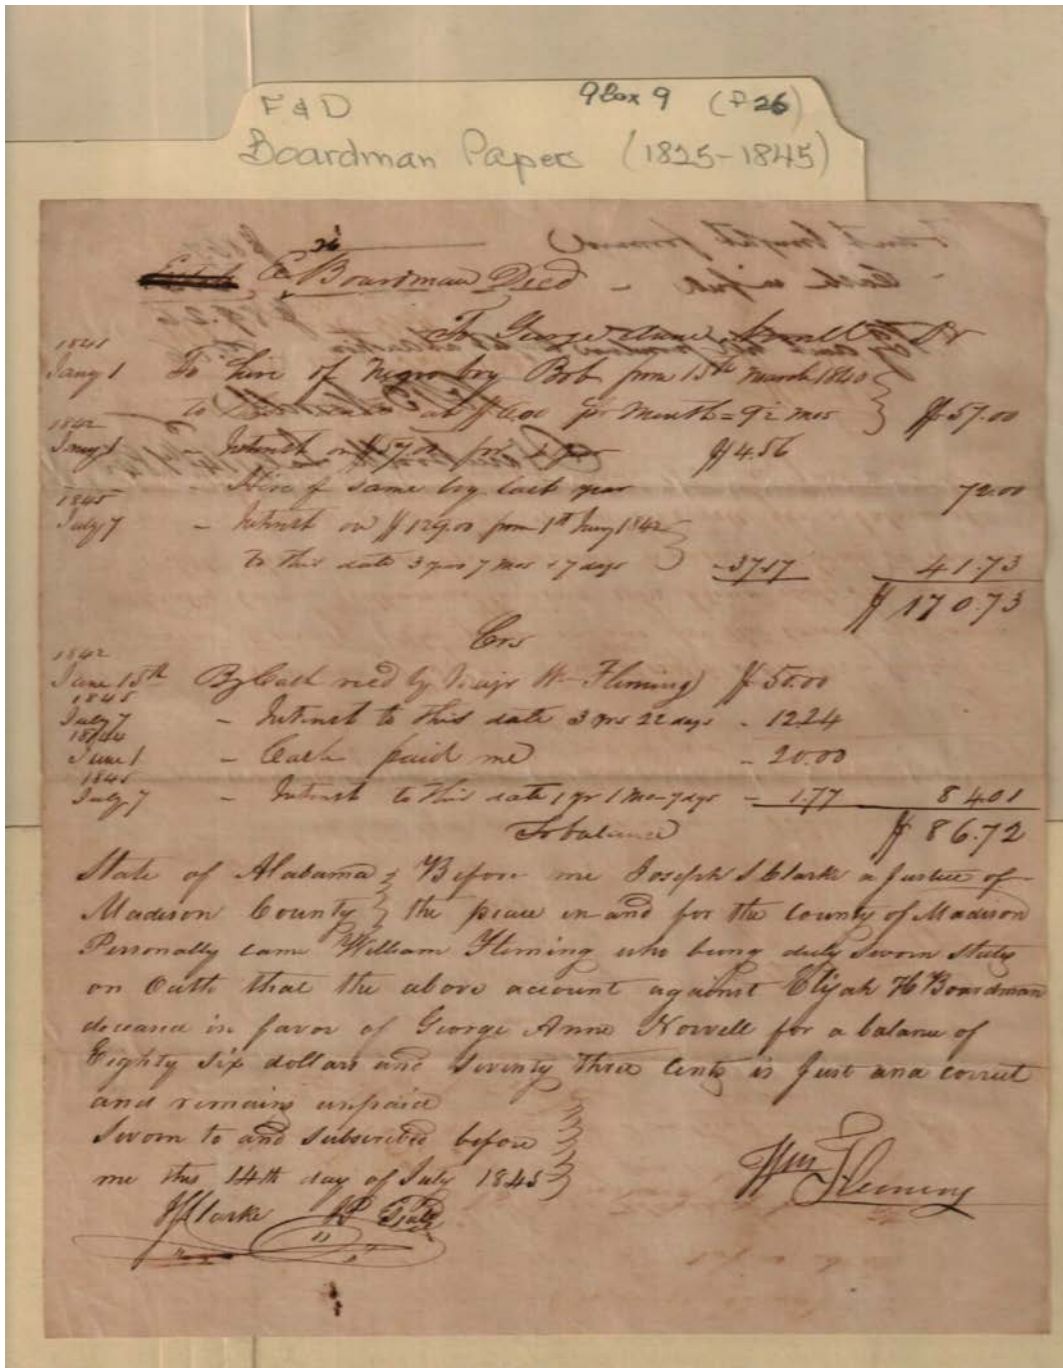 F & D 9Box 9 (F 26)
Boardman Papers (1825-1845)
26
E Boardman Decd
To George Anne Norvell Dr
1841
Jany 1 To hire of Negro boy Bob from 15th March 1840
to at $6.00 pr Month = 9½ mos $57.00
1842
Jany 1 Interest on $57.00 for 1 year $4.56
- Hire of same boy last year 72.00
1845
July 7 - Interest on $129.00 from 1st Jany 1842
to this date 3 yrs 7 mos & 7 days - 37.17 41.73
$170.73
Crs
1842
June 15th By Cash recd by Wm Fleming $50.00
1845
July 7 - Interest to this date 3 yrs 22 days - 12.24
1844
June 1 - Cash paid me - 20.00
1845
July 7 - Interest to this date 1 yr 1 Mo 7 dys - 1.77 84.01
To balance $86.72
State of Alabama } Before me Joseph S Clarke a Justice of
Madison County } the peace in and for the County of Madison
Personally came William Fleming who being duly sworn states
on Oath that the above account against Elijah H Boardman
deceased in favor of George Anne Norvell for a balance of
Eighty Six dollars and Seventy three Cents is Just and correct
and remains unpaid
Sworn to and subscribed before
me this 14th day of July 1845 } Wm Fleming
JSClarke JP